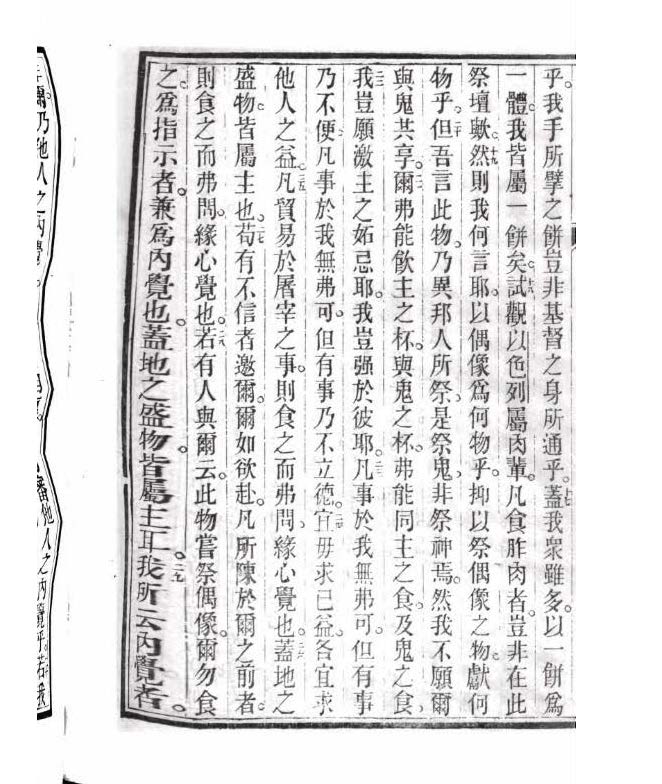 乎。我手所擘之餅豈非基督之身所通乎。蓋我眾雖多。以一餅爲
一體。我皆屬一餅矣。試觀以色列屬肉輩。凡食胙肉者。豈非在此
祭壇歟。然則我何言耶。以偶像爲何物乎。抑以祭偶像之物獻何
物乎。但吾言此物。乃異邦人所祭。是祭鬼。非祭神焉。然我不願爾
與鬼共享。爾弗能飲主之杯。與鬼之杯。弗能同主之食。及鬼之食。
我豈願激主之妬忌耶。我豈强於彼耶。凡事於我無弗可。但有事
乃不便。凡事於我無弗可。但有事乃不立德。宜毋求己益。各宜求
他人之益。凡貿易於屠宰之事。則食之而弗問。緣心覺也。蓋地之
盛物。皆屬主也。苟有不信者邀爾。爾如欲赴。凡所陳於爾之前者。
則食之而弗問。緣心覺也。若有人與爾云。此物嘗祭偶像。爾勿食
之。爲指示者。兼爲內覺也。蓋地之盛物。皆屬主耳。我所云內覺者。
爾乃他人之內覺
他人之內覺乎。若我